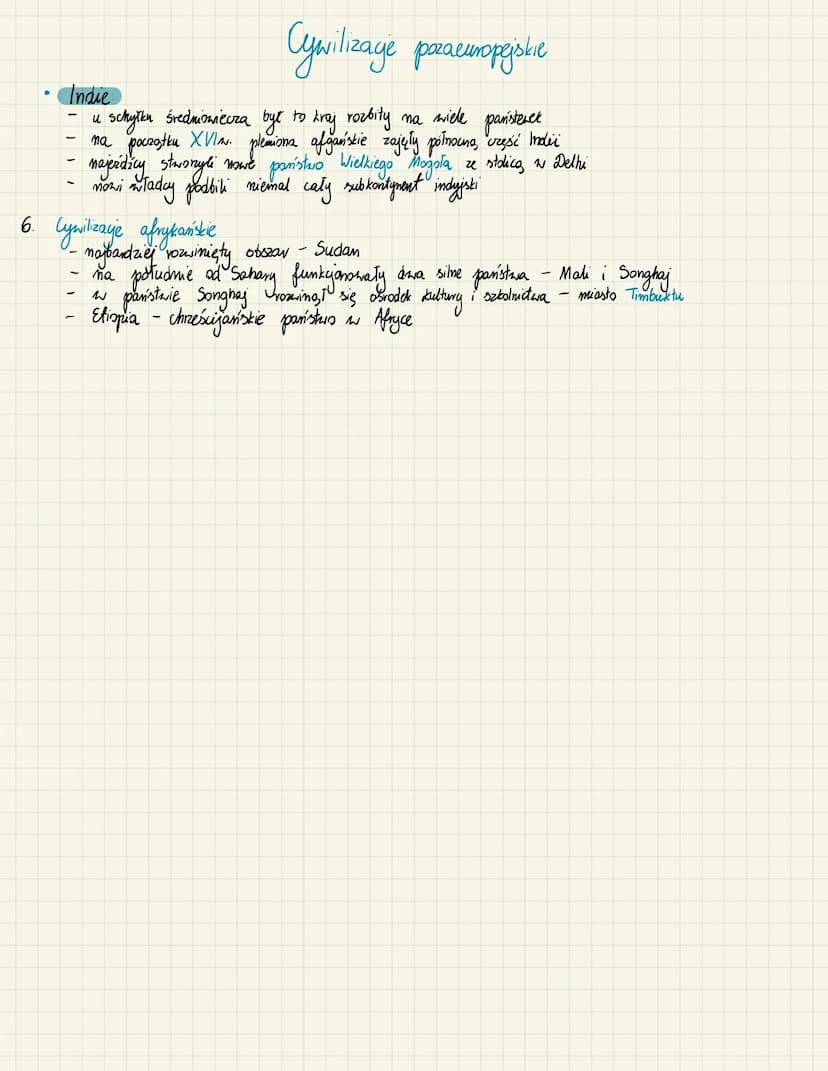 Cywilizacje pozaeuropejskie
• Indie
- u schyłku średniowiecza był to kraj rozbity na wiele państewek
- na początku XVI w. plemiona afgańskie zajęły północną część Indii
- najeźdźcy stworzyli nowe państwo Wielkiego Mogoła ze stolicą w Delhi
- nowi władcy podbili niemal cały subkontynent indyjski
6. Cywilizacje afrykańskie
- najbardziej rozwinięty obszar - Sudan
- na południe od Sahary funkcjonowały dwa silne państwa - Mali i Songhaj
- w państwie Songhaj rozwinął się ośrodek kultury i szkolnictwa - miasto Timbuktu
- Etiopia - chrześcijańskie państwo w Afryce